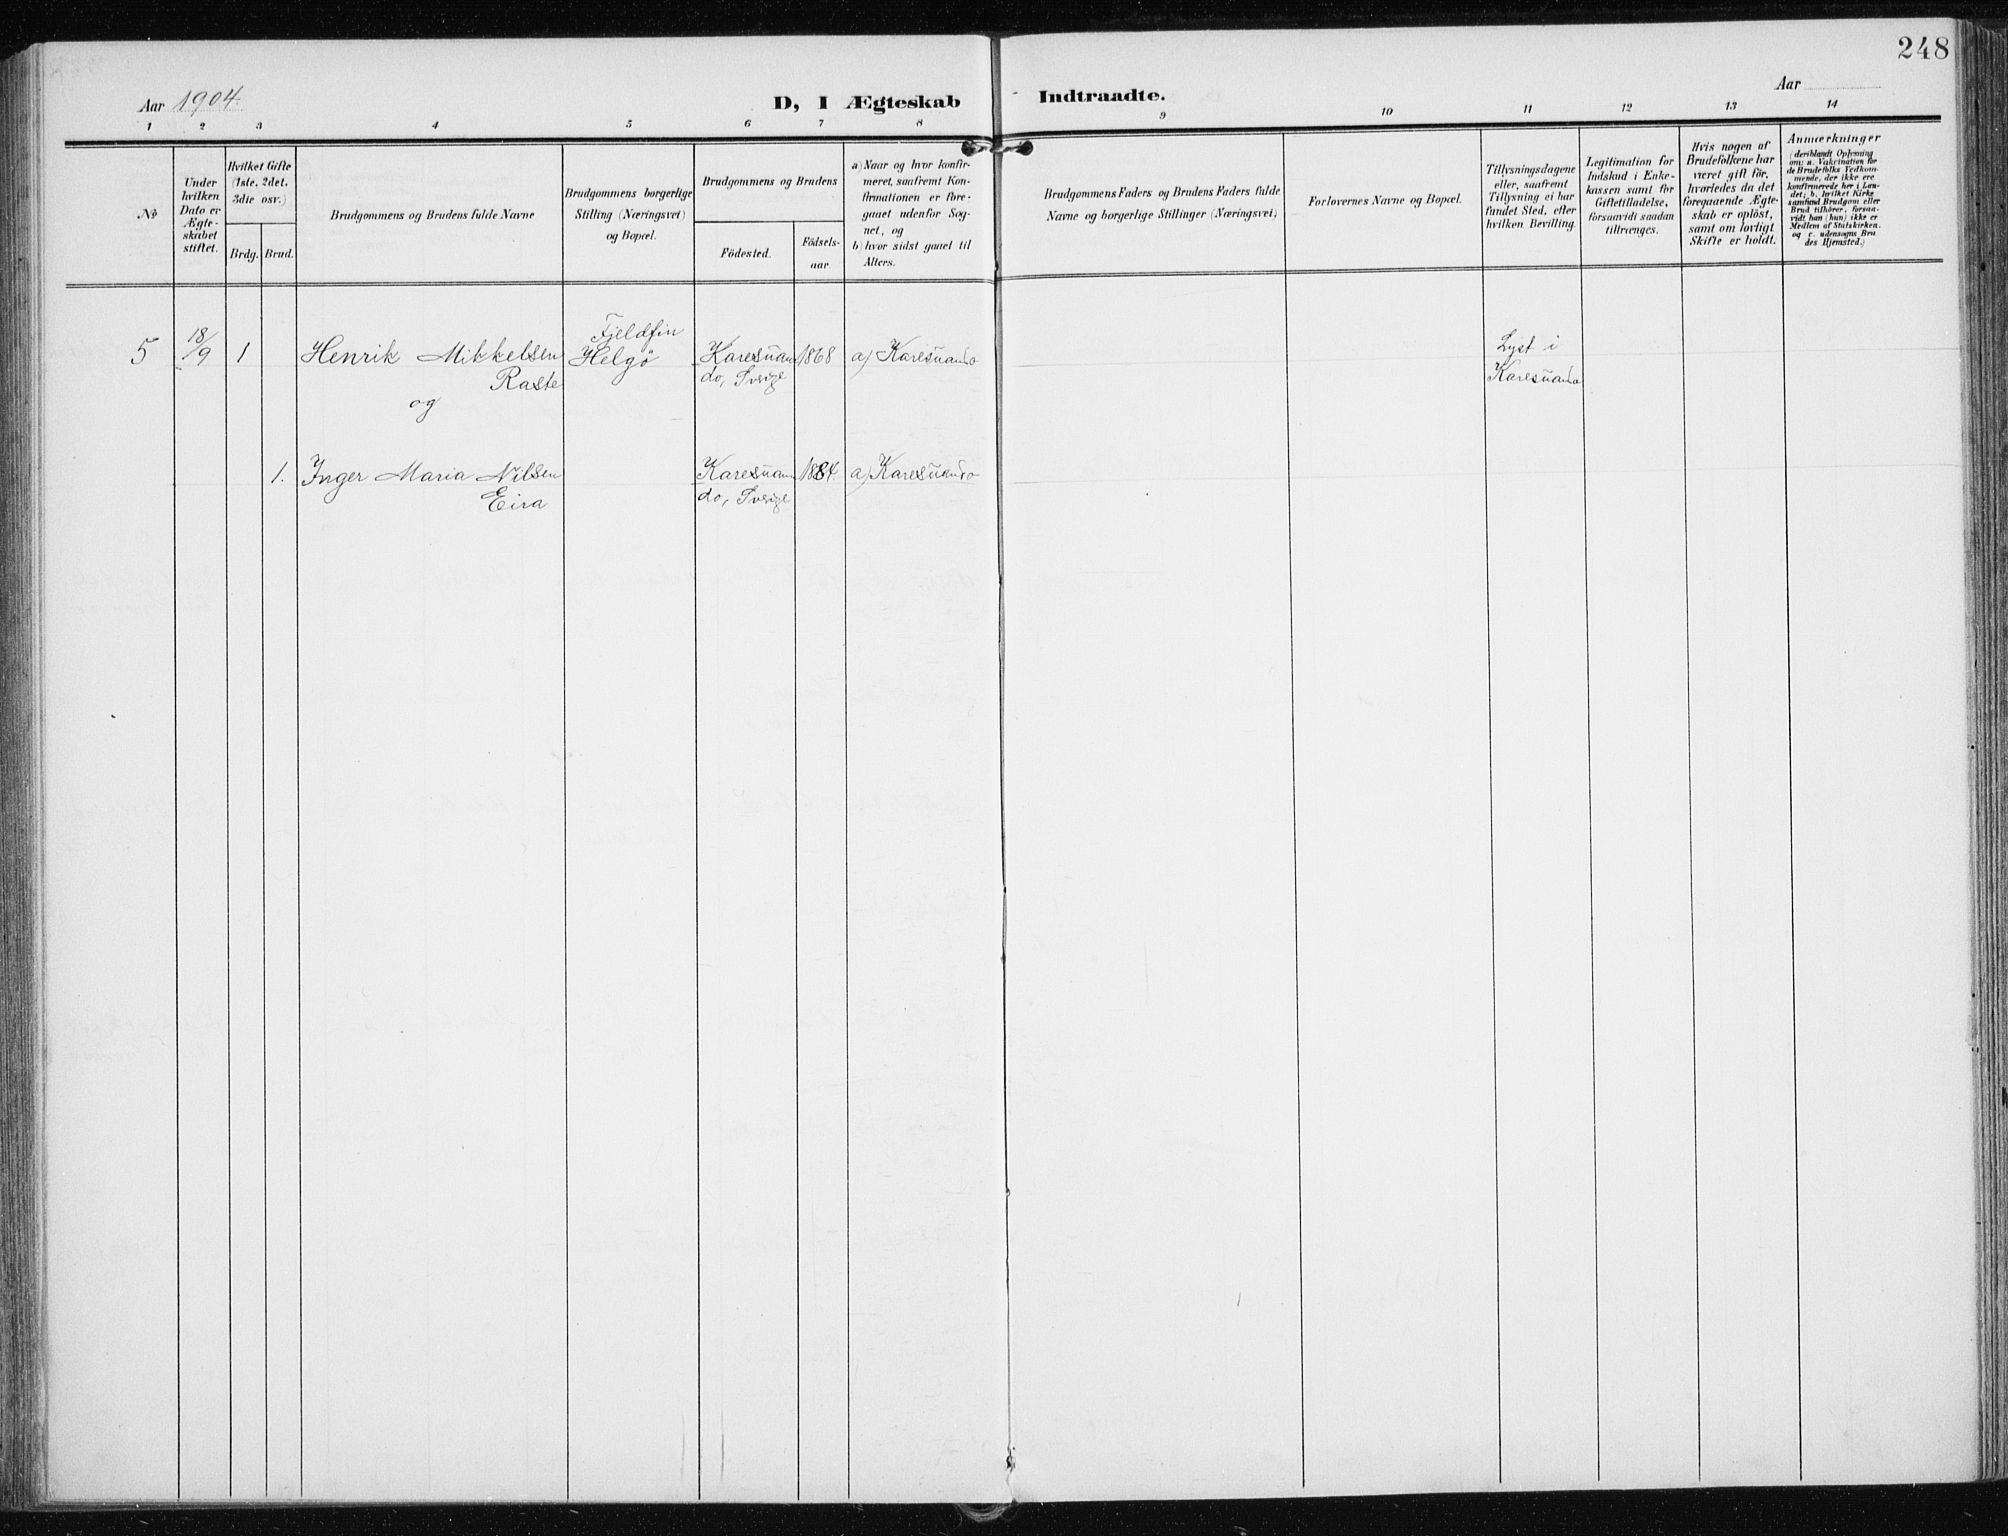 248
Aar 1904.
D, I Ægteskab Indtraadte.
Aar
1 2 3 4 5 6 7 8 9 10 11 12 13 14
No
Under
hvilken
Dato er
Ægte-
skabet
stiftet.
Hvilket Gifte
(1ste, 2det,
3die osv.)
Brdg. Brud.
Brudgommens og Brudens fulde Navne
Brudgommens borgerlige
Stilling (Næringsvei)
og Bopæl.
Brudgommens og Brudens
Födested.
Födsels-
aar.
a) Naar og hvor konfir-
meret, saafremt Kon-
firmationen er fore-
gaaet udenfor Sog-
net, og
b) hvor sidst gaaet til
Alters.
Brudgommens Faders og Brudens Faders fulde
Navne og borgerlige Stillinger (Næringsvei)
Forlovernes Navne og Bopæl.
Tillysningsdagene
eller, saafremt
Tillysning ei har
fundet Sted, efter
hvilken Bevilling.
Legitimation for
Indskud i Enke-
kassen samt for
Giftetilladelse,
forsaavidt saadan
tiltrænges.
Hvis nogen af
Brudefolkene har
været gift før,
hvorledes da det
foregaaende Ægte-
skab er oplöst,
samt om lovligt
Skifte er holdt.
Anmærkninger
(deriblandt Oplysning
om: a. Vakcination for
de Brudefolks Vedkom-
mende, der ikke ere
konfirmerede her i Lan-
det; b. hvilket Kirke
samfund Brudgom eller
Brud tilhörer, forsaa-
vidt han (hun) ikke er
Medlem af Statskirken.
og c. udensogns Bru
des Hjemsted.)
5 18/9 1 Henrik Mikkelsen
Raste
og
Fjeldfin
Helgö
Karesuan
do, Sverige
1868
a) Karesuando
Lyst i
Karesuando
1. Inger Maria Nilsen
Eira
Karesuan
do, Sverige
1884.
a) Karesuando